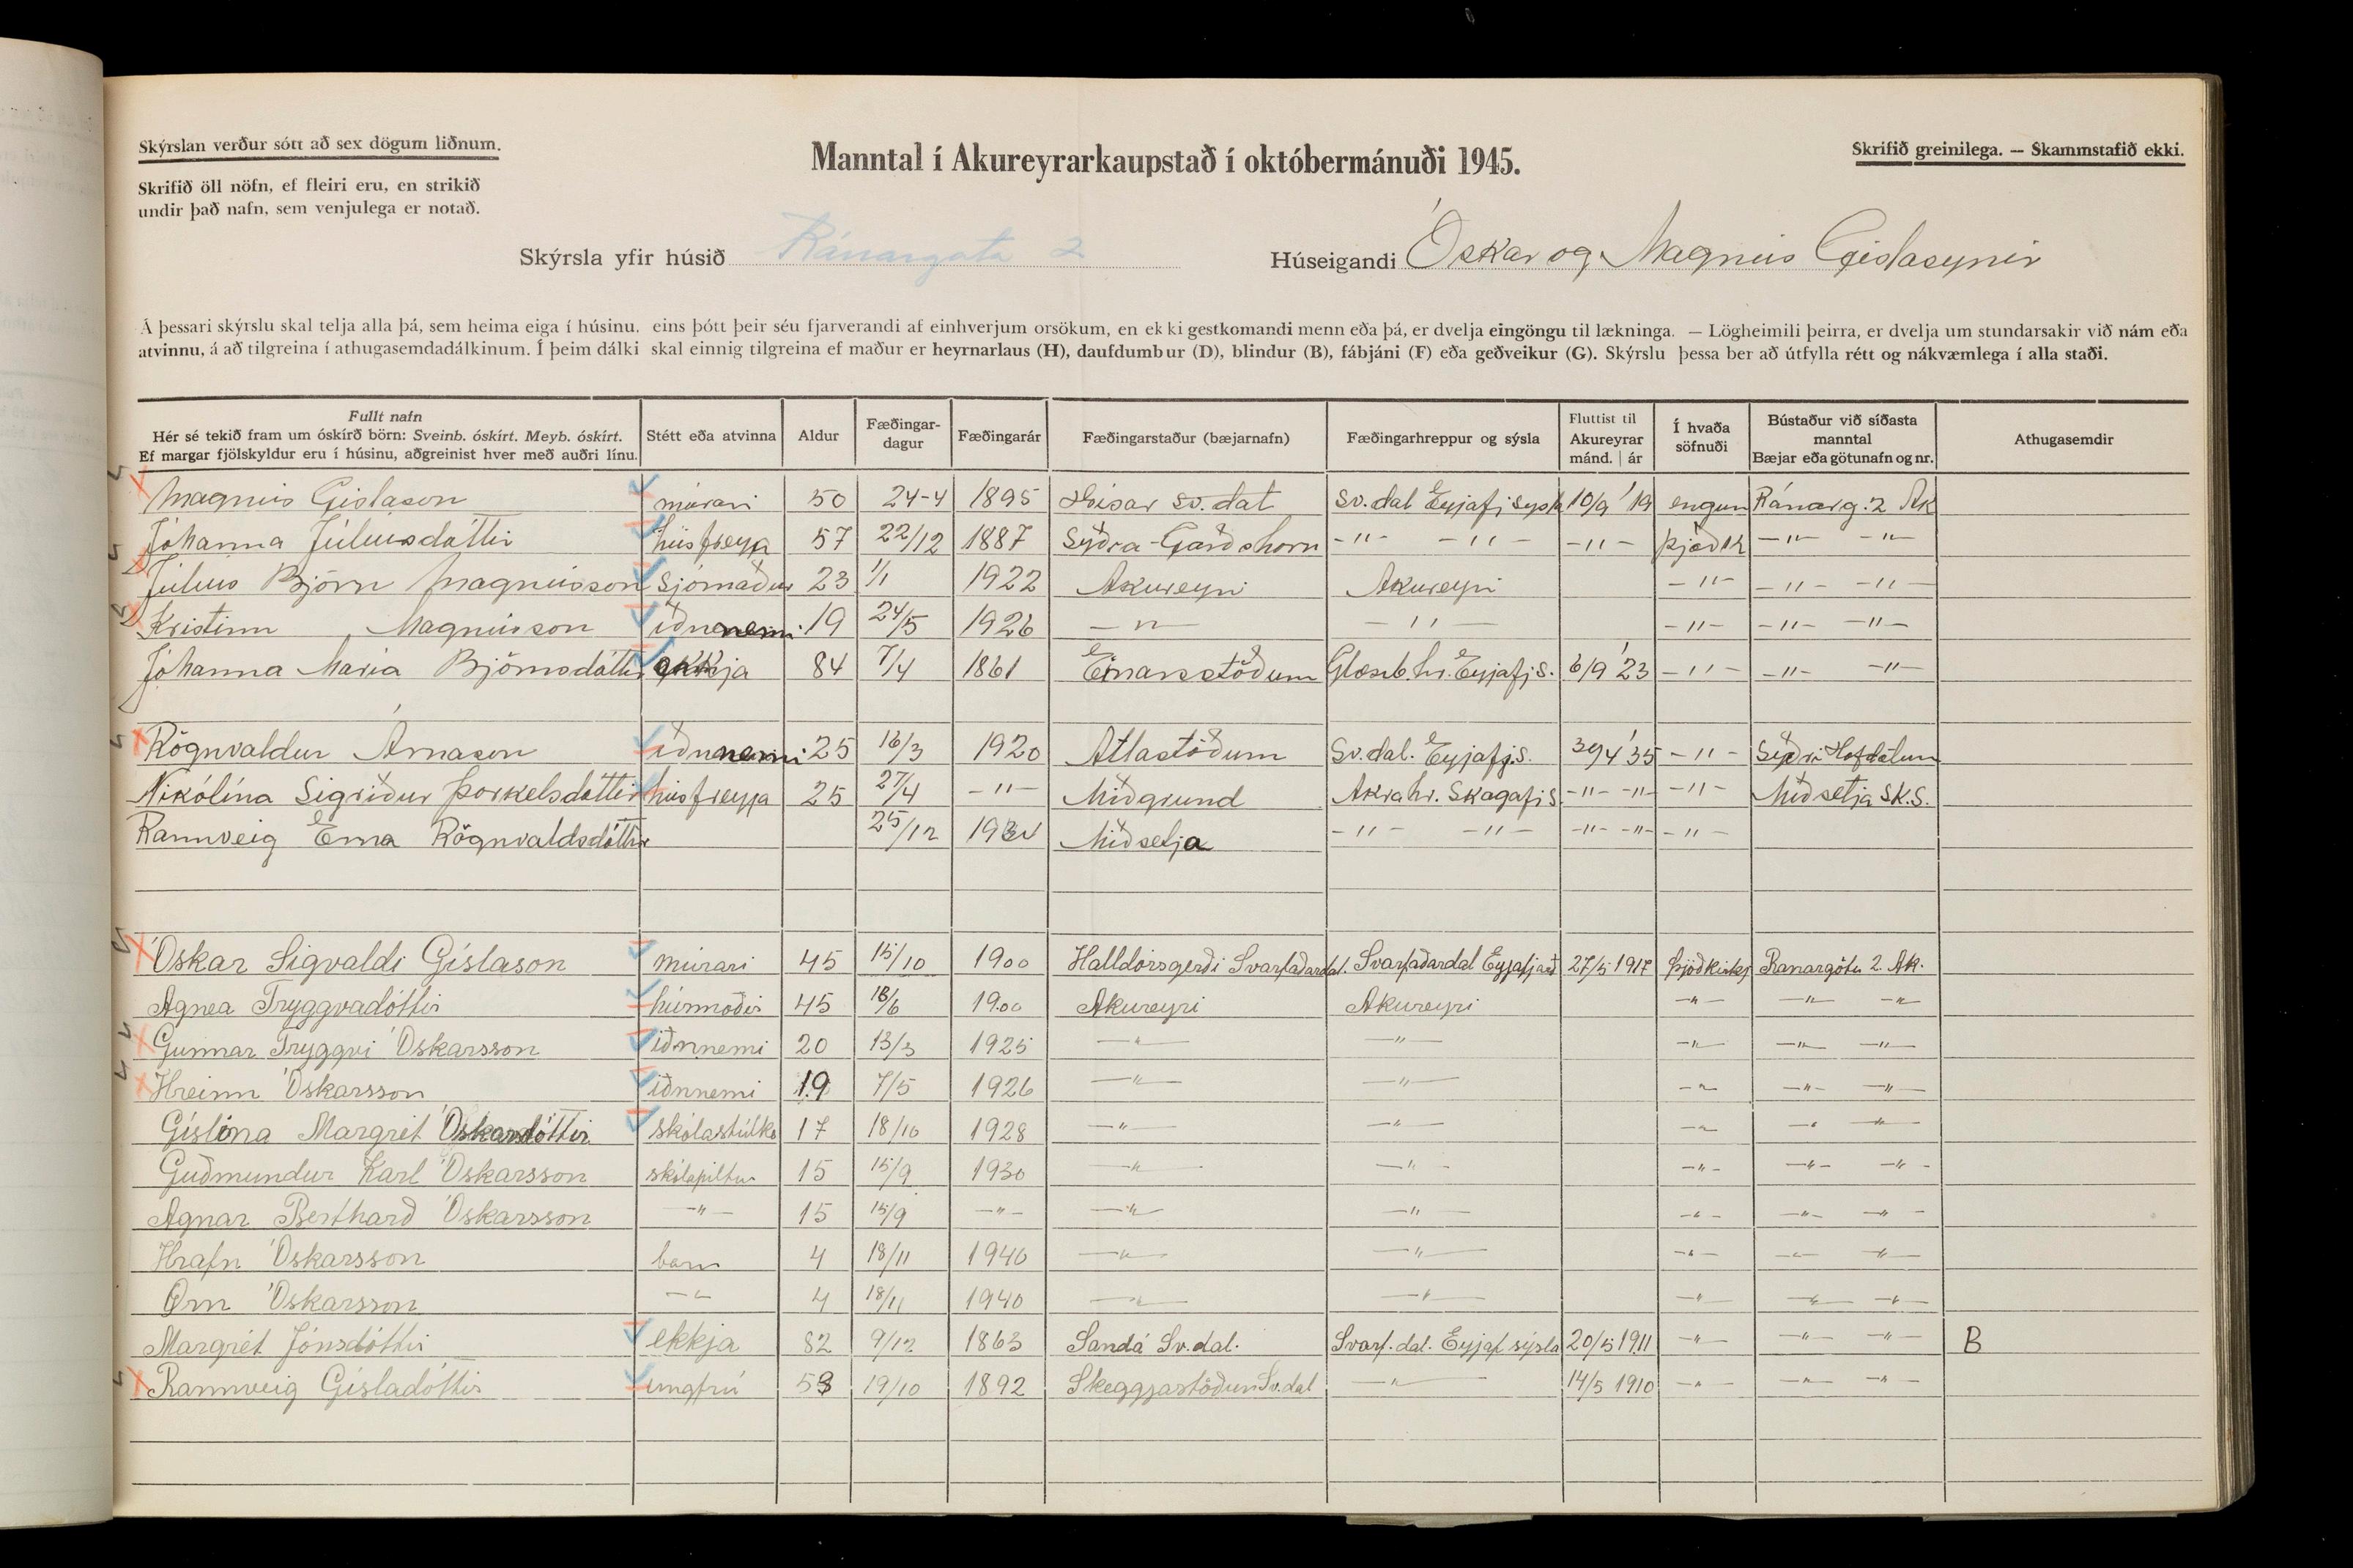 Skýrslan verður sótt að sex dögum liðnum.
Manntal í Akureyrarkaupstað í októbermánuði 1945.
Skrifið greinilega. — Skammstafið ekki.
Skrifið öll nöfn, ef fleiri eru, en strikið
undir það nafn, sem venjulega er notað.
Skýrsla yfir húsið Ránargata 2
Húseigandi Óskar og Magnús Gíslasynir
Á þessari skýrslu skal telja alla þá, sem heima eiga í húsinu, eins þótt þeir séu fjarverandi af einhverjum orsökum, en ekki gestkomandi menn eða þá, er dvelja eingöngu til lækninga. — Lögheimili þeirra, er dvelja um stundarsakir við nám eða
atvinnu, á að tilgreina í athugasemdadálkinum. Í þeim dálki skal einnig tilgreina ef maður er heyrnarlaus (H), daufdumbur (D), blindur (B), fábjáni (F) eða geðveikur (G). Skýrslu þessa ber að útfylla rétt og nákvæmlega í alla staði.
Fullt nafn
Hér sé tekið fram um óskírð börn: Sveinb. óskírt. Meyb. óskírt.
Ef margar fjölskyldur eru í húsinu, aðgreinist hver með auðri línu.
Stétt eða atvinna
Aldur
Fæðingar-
dagur
Fæðingarár
Fæðingarstaður (bæjarnafn)
Fæðingarhreppur og sýsla
Fluttist til
Akureyrar
mánd. | ár
Í hvaða
söfnuði
Bústaður við síðasta
manntal
Bæjar eða götunafn og nr.
Athugasemdir
Magnús Gíslason múrari 50 24-4 1895 Hísar sv.dal sv.dal Eyjafj sysla 10/9 '19 engum Ránarg. 2 Ak
Jóhanna Júlíusdóttir húsfreyja 57 22/12 1887 Syðra-Garðshorn -"- -"- -"- þjóðk -"- -"-
Júlíus Björn Magnússon sjómaður 23 1/1 1922 Akureyri Akureyri -"- -"- -"-
Kristinn Magnússon iðnnemi 19 24/5 1926 -"- -"- -"- -"- -"-
Jóhanna María Björnsdóttir ekkja 84 7/4 1861 Einarsstöðum Glæsib.hr. Eyjafj S. 6/9 '23 -"- -"- -"-
Rögnvaldur Árnason iðnnemi 25 16/3 1920 Atlastöðum Sv.dal. Eyjafj.S. 30/4 '35 -"- Syðri Hofdölum
Nikólína Sigríður Þorkelsdóttir húsfreyja 25 27/4 -"- Miðgrund Akrahr. Skagafj S. -"- -"- -"- Miðsetja SK.S.
Rannveig Erna Rögnvaldsdóttir 25/12 Miðsetja -"- -"- -"- -"- -"-
Óskar Sigvaldi Gíslason múrari 45 15/10 1900 Halldórsgerði Svarfaðardal. Svarfaðardal Eyjafjarð 27/5 1917 Þjóðkirkj Ranargötu 2. Ak.
Agnea Tryggvadóttir húsmóðir 45 18/6 1900 Akureyri Akureyri -"- -"- -"-
Gunnar Tryggvi Óskarsson iðnnemi 20 13/3 1925 -"- -"- -"- -"- -"-
Hreinn Óskarsson iðnnemi 19 7/5 1926 -"- -"- -"- -"- -"-
Gíslína Margrét Óskarsdóttir skólastúlka 17 18/10 1928 -"- -"- -"- -"- -"-
Guðmundur Karl Óskarsson skólapiltur 15 15/9 1930 -"- -"- -"- -"- -"-
Agnar Berthard Óskarsson -"- 15 15/9 -"- -"- -"- -"- -"- -"-
Hrafn Óskarsson barn 4 18/11 1940 -"- -"- -"- -"- -"-
Örn Óskarsson -"- 4 18/11 1940 -"- -"- -"- -"- -"-
Margrét Jónsdóttir ekkja 82 9/12 1863 Sandá Sv.dal. Svarf.dal. Eyjaf sýsla 20/5 1911 -"- -"- -"- B
Rannveig Gísladóttir ungfrú 53 19/10 1892 Skeggjastöðum Sv.dal -"- 14/5 1910 -"- -"- -"-